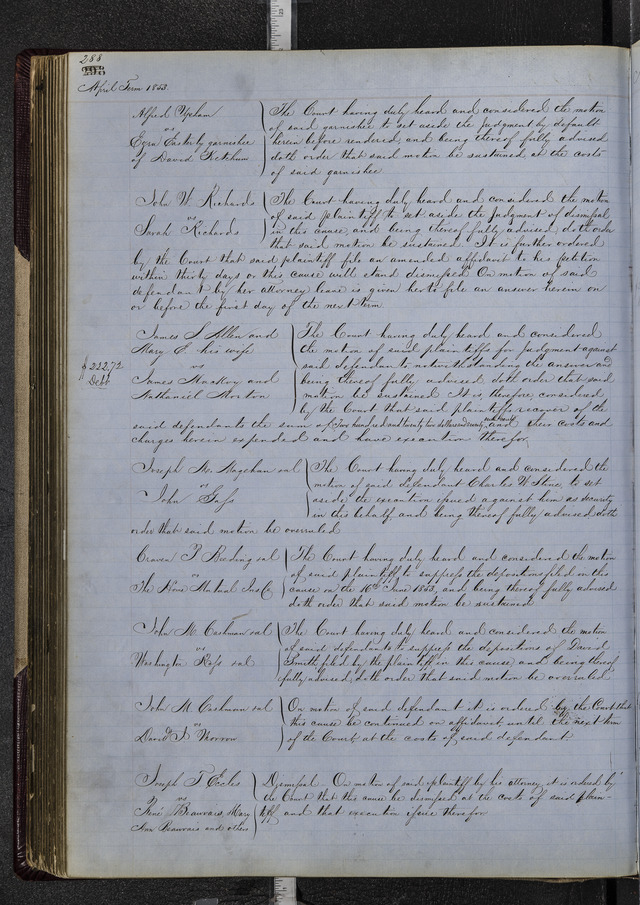 288
April Term 1853.
Alfred Upham
vs
Ezra Easterly garnishee
of David Ketchum
The Court having duly heard and considered the motion
of said garnishee to set aside the judgment by default
herein before rendered, and being thereof fully advised
doth order that said motion be sustained at the costs
of said garnishee
John W. Richards
vs
Sarah Richards
The Court having duly heard and considered the motion
of said plaintiff to set aside the judgment of dismissal
in this cause, and being thereof fully advised, doth order
that said motion be sustained. It is further ordered
by the Court that said plaintiff file an amended affidavit to his petition
within thirty days or this cause will stand dismissed. On motion of said
defendant by her attorney leave is given her to file an answer herein on
or before the first day of the next term
$222.72
Debt
James S Allen and
Mary E his wife
vs
James Mackey and
Nathaniel Morton
The Court having duly heard and considered
the motion of said plaintiffs for judgment against
said defendants notwithstanding the answer and
being thereof fully advised doth order that said
motion be sustained. It is, therefore, considered
by the Court that said plaintiffs recover of the
said defendants the sum of Two hundred and twenty two dollars and seventy two cents and their costs and
charges herein expended and have execution therefor
Joseph M. al
vs
John
The Court having duly heard and considered the
motion of said defendant Charles W Stone, to set
aside the execution issued against him as security
in this behalf and being thereof fully advised doth
order that said motion be overruled
Craven P al
vs
The Home Mutual Ins Co
The Court having duly heard and considered the motion
of said plaintiff to suppress the depositions filed in this
cause on the 16th June 1853, and being thereof fully advised
doth order that said motion be sustained
John M. Eastman et al
vs
Washington Ross et al
The Court having duly heard and considered the motion
of said defendants to suppress the depositions of David
Smith filed by the plaintiff in this cause and being thereof
fully advised, doth order that said motion be overruled
John M. Cashman et al
vs
David S. Morrow
On motion of said defendant it is ordered by the Court that
this cause be continued on affidavit, until the next term
of the Court, at the costs of said defendant
Joseph T Eccles
vs
René Beauvais, Mary
Ann Beauvais and others
Dismissal. On motion of said plaintiff by his attorney, it is ordered by
the Court that this cause be dismissed at the costs of said plain-
tiff and that execution issue therefor